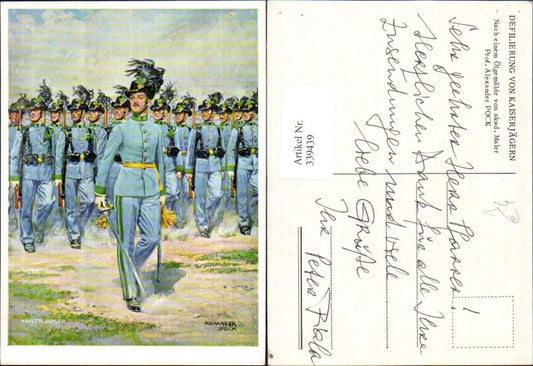 KAISERJÄGER
ALEXANDER
POCK
DEFILIERUNG VON KAISERJÄGERN
Nach einem Ölgemälde von akad. Maler
Prof. Alexander POCK
Artikel Nr.
339439
Sehr geehrter Herr Pfarrer!
Herzlichen Dank für alle Ihre
Zusendungen und viele
liebe Grüße
Ihr Peter